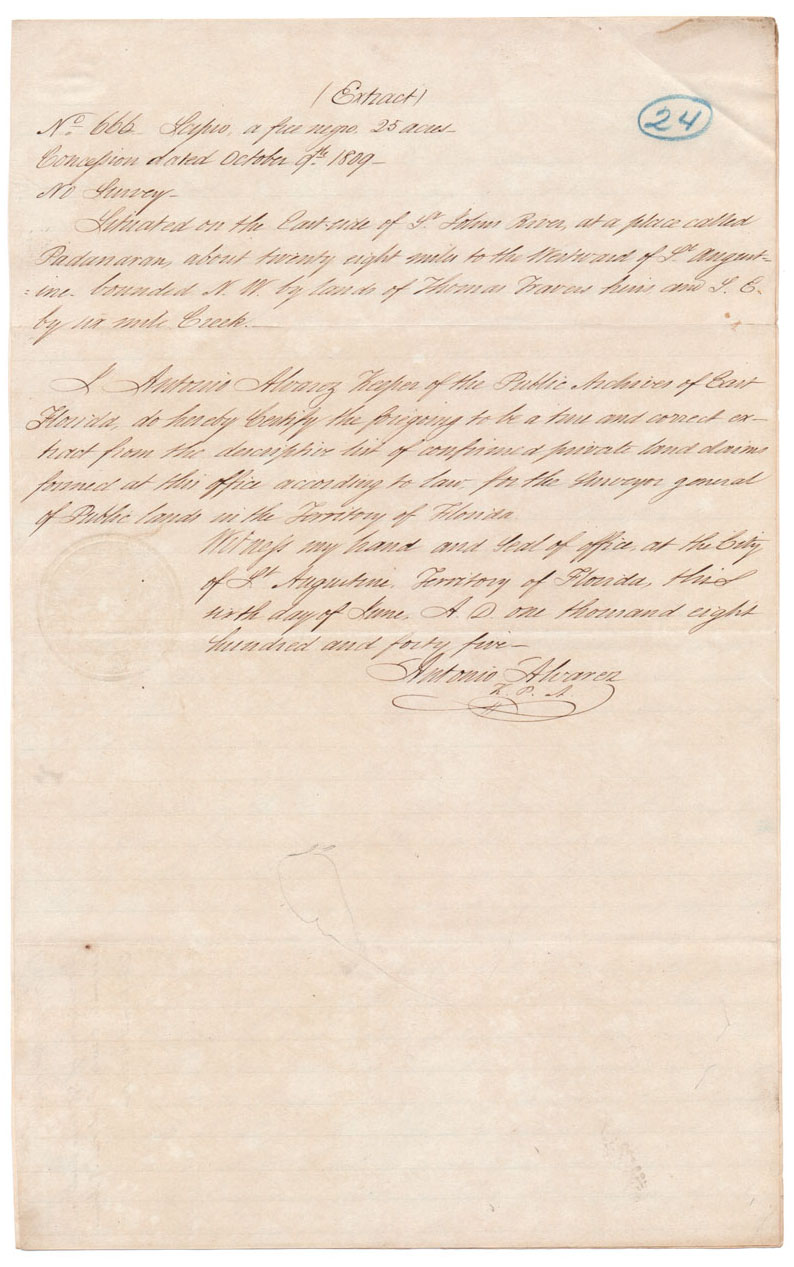 (Extract)
24
No 666 Scipio, a free negro. 25 acres-
Concession dated October 9th. 1809-
No Survey-
Situated on the East side of St. Johns River, at a place called
Padanaran, about twenty eight miles to the Westward of St. August=
=ine. bounded N. W. by lands of Thomas Travers heirs and S. E.
by six mile Creek.
I Antonio Alvarez Keeper of the Public Archives of East
Florida, do hereby Certify the foregoing to be a true and correct ex-
tract from the descriptive list of confirmed private land claims
formed at this office according to law for the Surveyor general
of Public lands in the Territory of Florida
Witness my hand and Seal of office, at the City
of St. Augustine, Territory of Florida, this
day of June, A. D. one thousand eight
hundred and forty five-
Antonio Alvarez
K. P. A.